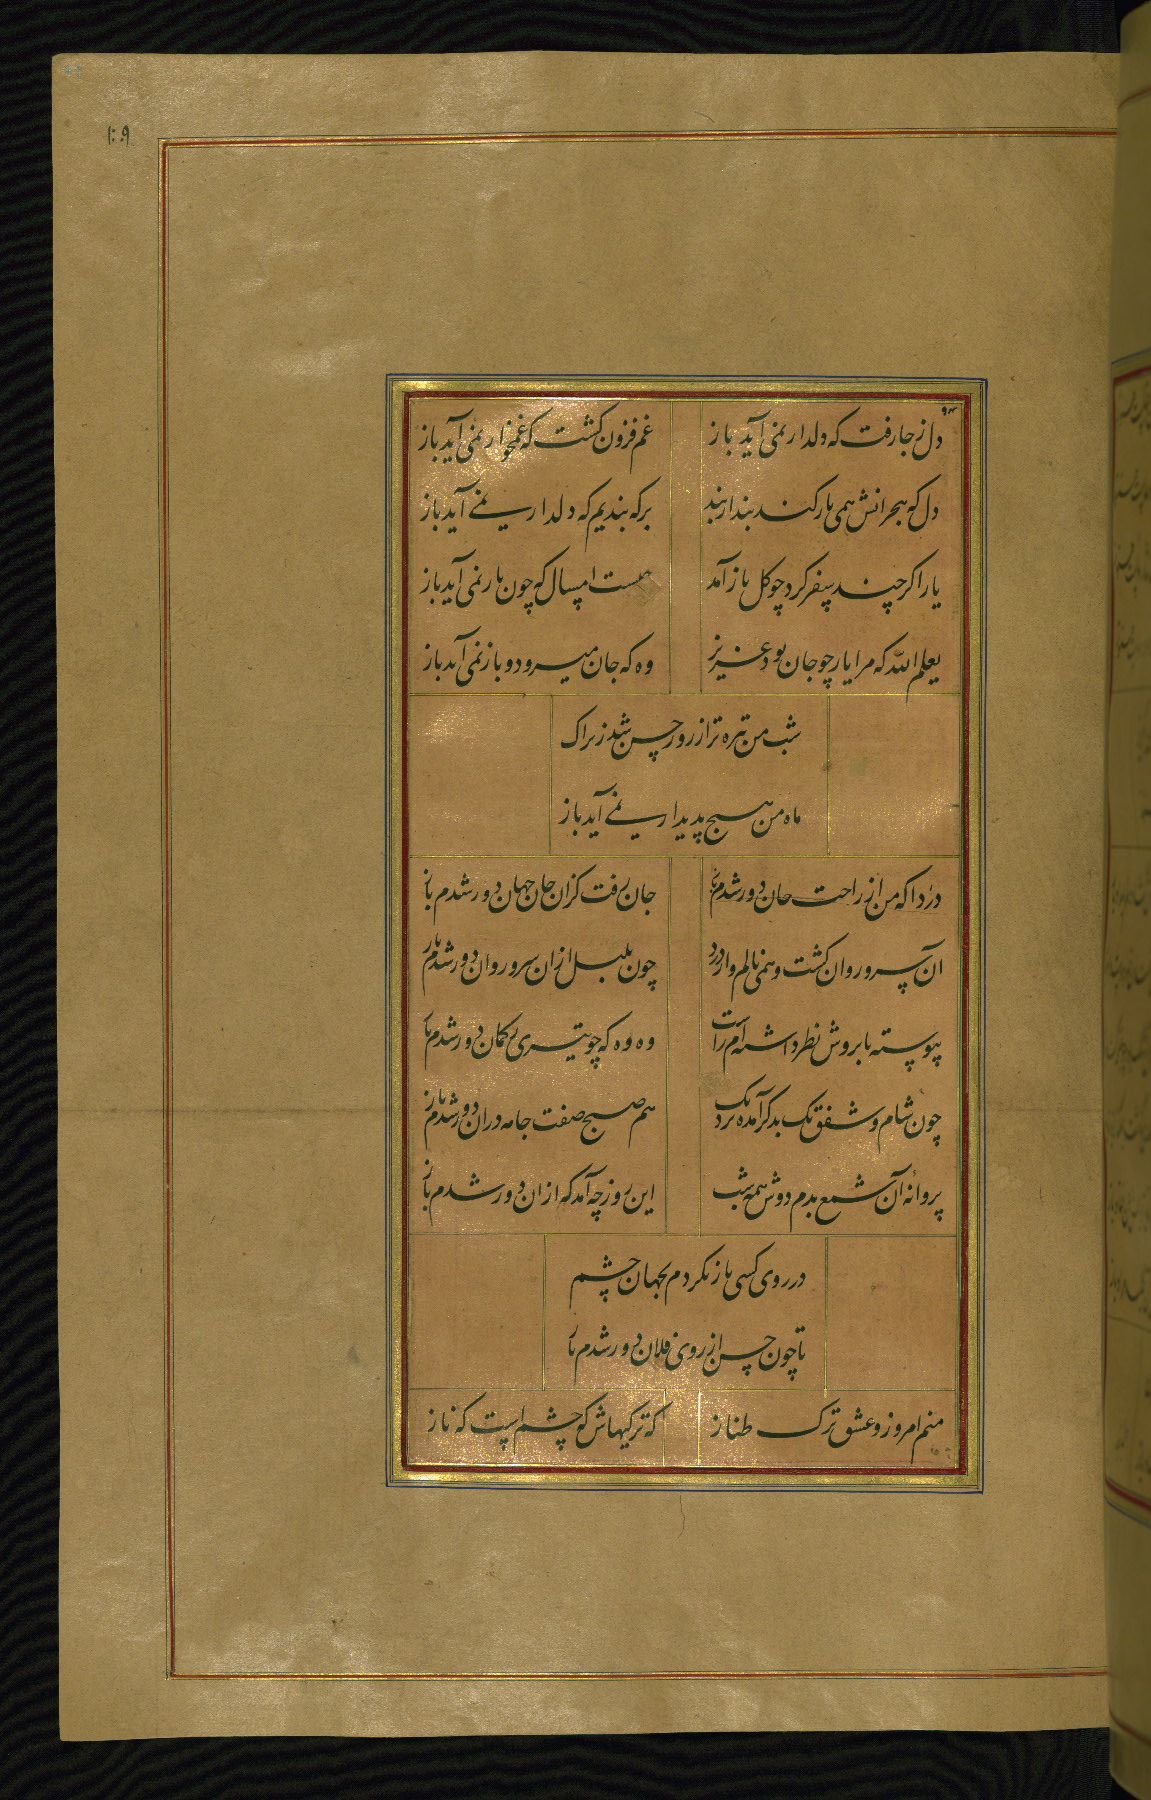 ۱۰۹
۹۴
دل ز جا رفت که دلدار نمی آید باز
غم فزون کشت که غمخوار نمی آید باز
دل که هجرانش همی بار کند بند از بند
برکه بندیم که دلدار نمی آید باز
یار اکر چند سفر کرد چو کل باز آمد
هست امسال که چون بار نمی آید باز
یعلم الله که مرا یار چو جان بود عزیز
وه که جان میرود و باز نمی آید باز
شب من تیره تر از روز حسن شد زیراک
ماه من هیچ پدیدار نمی آید باز
دردا که من از راحت جان دور شدم باز
جان رفت کزان جان جهان دور شدم باز
آن سرو روان کشت و همی نالم و از درد
چون بلبل ازان سرو روان دور شدم باز
پیوسته بابروش نظر داشته ام راست
وه وه که چو تیری ز کمان دور شدم باز
چون شام و شفق یک بدکر آمده نزدیک
هم صبح صفت جامه دران دور شدم باز
پروانه آن شمع بدم دوش همه شب
این روز چه آمد که ازان دور شدم باز
در روی کسی باز نکردم بجهان چشم
تا چون حسن از روی فلان دور شدم باز
منم امروز و عشق ترک طناز
که ترکیهاش که چشم است که ناز